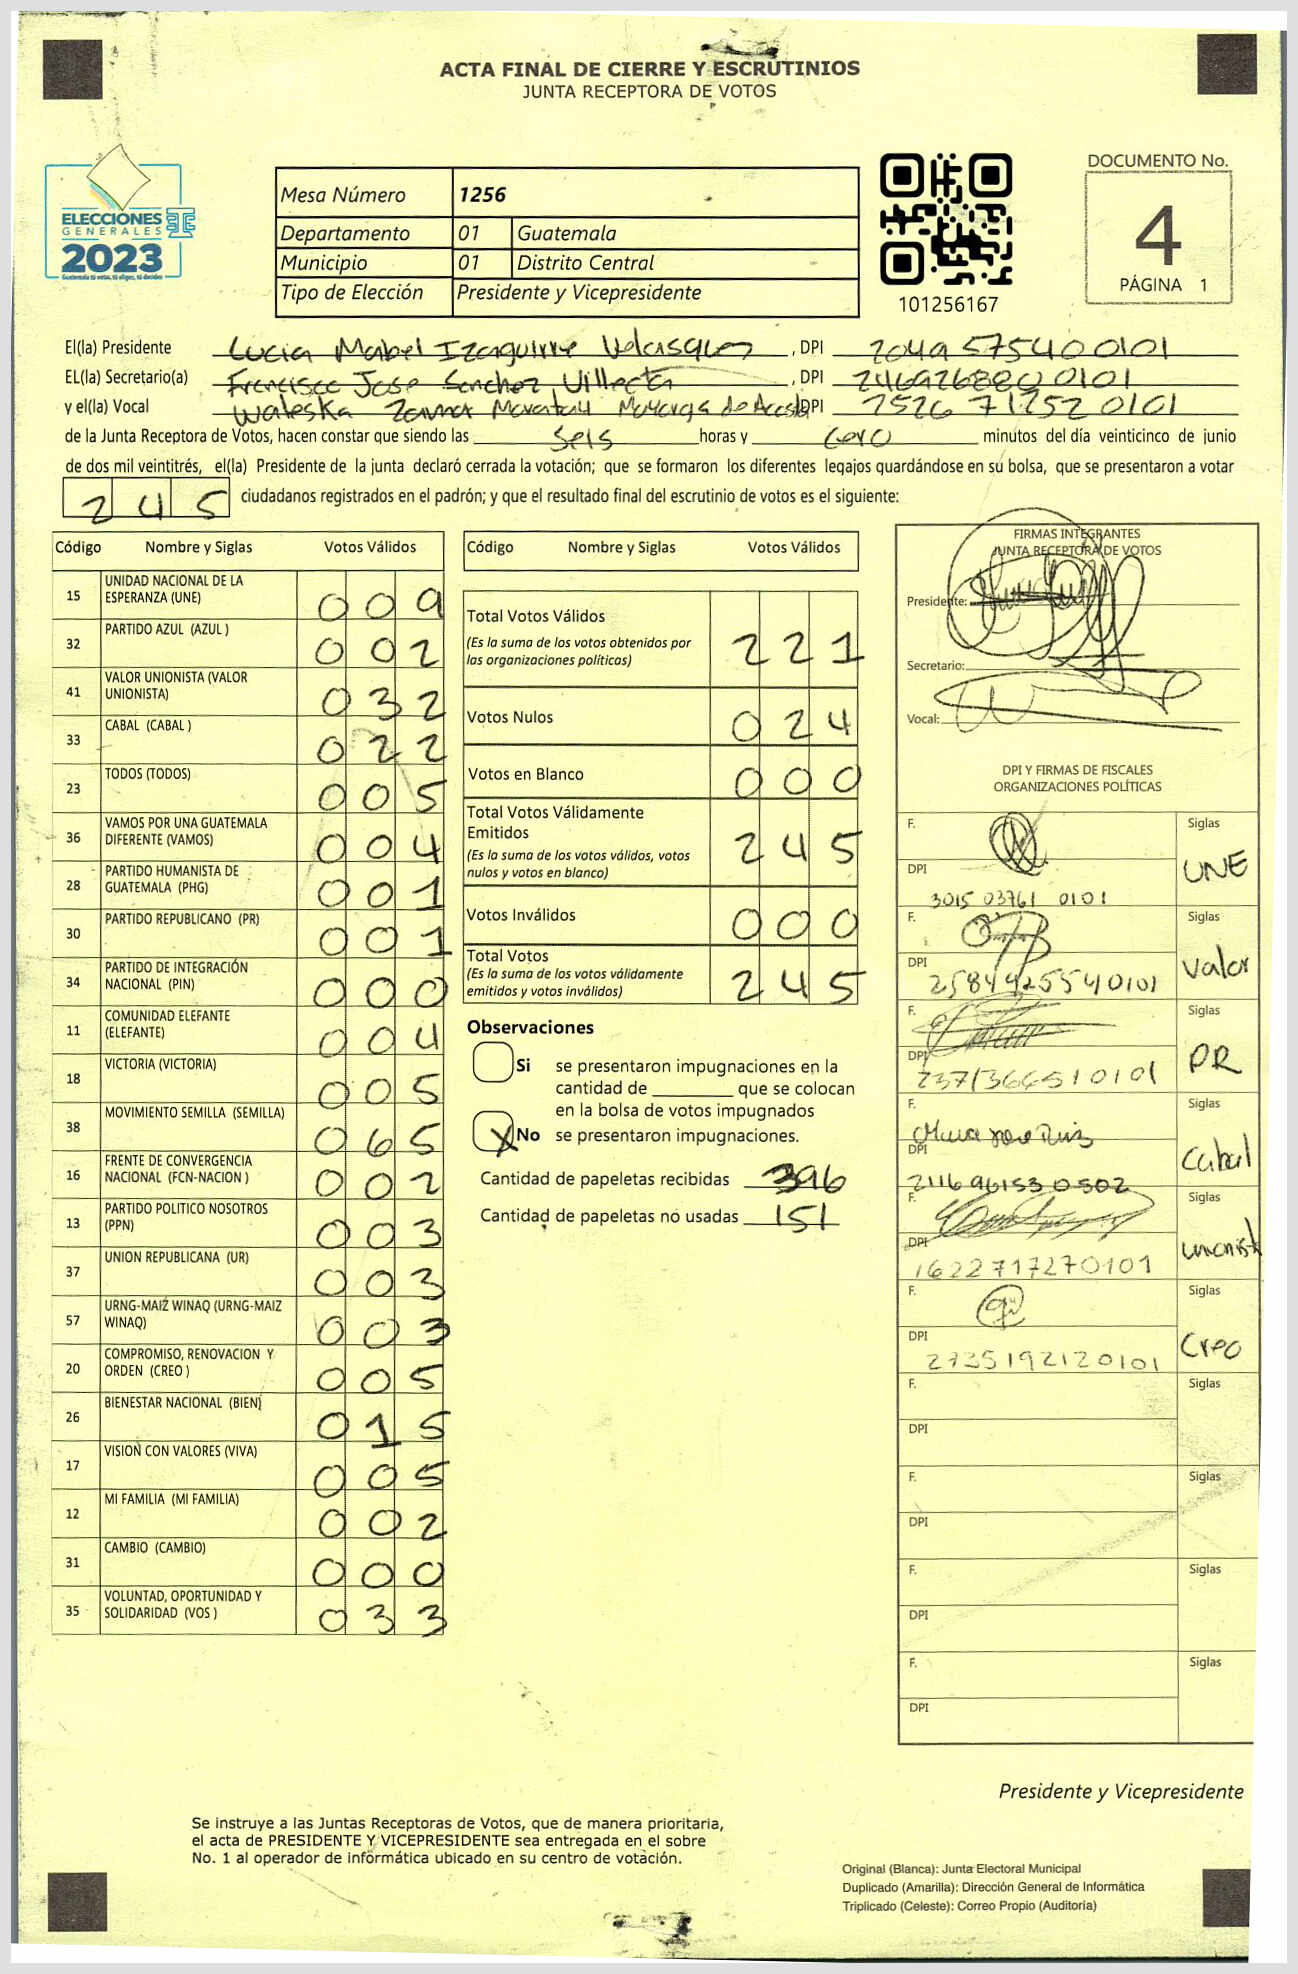 ACTA FINAL DE CIERRE Y ESCRUTINIOS
JUNTA RECEPTORA DE VOTOS
ELECCIONES
GENERALES
2023
Guatemala tú votas, tú eliges, tú decides
Mesa Número 1256
Departamento 01 Guatemala
Municipio 01 Distrito Central
Tipo de Elección Presidente y Vicepresidente
101256167
DOCUMENTO No.
4
PÁGINA 1
El(la) Presidente Lucia Mabel Izaguirre Velasquez, DPI 2049 57540 0101
EL(la) Secretario(a) Francisco Jose Sanchez Villecta, DPI 246926880 0101
y el(la) Vocal Waleska Mayorga de Acosta DPI 2526 71252 0101
de la Junta Receptora de Votos, hacen constar que siendo las seis horas y cero minutos del día veinticinco de junio
de dos mil veintitrés, el(la) Presidente de la junta declaró cerrada la votación; que se formaron los diferentes legajos guardándose en su bolsa, que se presentaron a votar
245 ciudadanos registrados en el padrón; y que el resultado final del escrutinio de votos es el siguiente:
Código Nombre y Siglas Votos Válidos
15 UNIDAD NACIONAL DE LA ESPERANZA (UNE) 009
32 PARTIDO AZUL (AZUL ) 002
41 VALOR UNIONISTA (VALOR UNIONISTA) 032
33 CABAL (CABAL ) 022
23 TODOS (TODOS) 005
36 VAMOS POR UNA GUATEMALA DIFERENTE (VAMOS) 004
28 PARTIDO HUMANISTA DE GUATEMALA (PHG) 001
30 PARTIDO REPUBLICANO (PR) 001
34 PARTIDO DE INTEGRACIÓN NACIONAL (PIN) 000
11 COMUNIDAD ELEFANTE (ELEFANTE) 004
18 VICTORIA (VICTORIA) 005
38 MOVIMIENTO SEMILLA (SEMILLA) 065
16 FRENTE DE CONVERGENCIA NACIONAL (FCN-NACION ) 002
13 PARTIDO POLITICO NOSOTROS (PPN) 003
37 UNION REPUBLICANA (UR) 003
57 URNG-MAIZ WINAQ (URNG-MAIZ WINAQ) 003
20 COMPROMISO, RENOVACION Y ORDEN (CREO ) 005
26 BIENESTAR NACIONAL (BIEN) 015
17 VISION CON VALORES (VIVA) 005
12 MI FAMILIA (MI FAMILIA) 002
31 CAMBIO (CAMBIO) 000
35 VOLUNTAD, OPORTUNIDAD Y SOLIDARIDAD (VOS ) 033
Código Nombre y Siglas Votos Válidos
Total Votos Válidos 221
(Es la suma de los votos obtenidos por
las organizaciones políticas)
Votos Nulos 024
Votos en Blanco 000
Total Votos Válidamente
Emitidos 245
(Es la suma de los votos válidos, votos
nulos y votos en blanco)
Votos Inválidos 000
Total Votos 245
(Es la suma de los votos válidamente
emitidos y votos inválidos)
Observaciones
Si se presentaron impugnaciones en la
cantidad de ________ que se colocan
en la bolsa de votos impugnados
X No se presentaron impugnaciones.
Cantidad de papeletas recibidas 396
Cantidad de papeletas no usadas 151
FIRMAS INTEGRANTES
JUNTA RECEPTORA DE VOTOS
Presidente:
Secretario:
Vocal:
DPI Y FIRMAS DE FISCALES
ORGANIZACIONES POLÍTICAS
F. Siglas
DPI 3015 03761 0101 UNE
F. Siglas
DPI 2584425540101 Valor
F. Siglas
DPI 2371366510101 PR
F. Siglas
DPI 2116961530502 Cabal
F. Siglas
DPI 1622717270101 unionist
F. Siglas
DPI 2735192120101 Creo
F. Siglas
DPI
F. Siglas
DPI
F. Siglas
DPI
F. Siglas
DPI
Presidente y Vicepresidente
Se instruye a las Juntas Receptoras de Votos, que de manera prioritaria,
el acta de PRESIDENTE Y VICEPRESIDENTE sea entregada en el sobre
No. 1 al operador de informática ubicado en su centro de votación.
Original (Blanca): Junta Electoral Municipal
Duplicado (Amarilla): Dirección General de Informática
Triplicado (Celeste): Correo Propio (Auditoría)